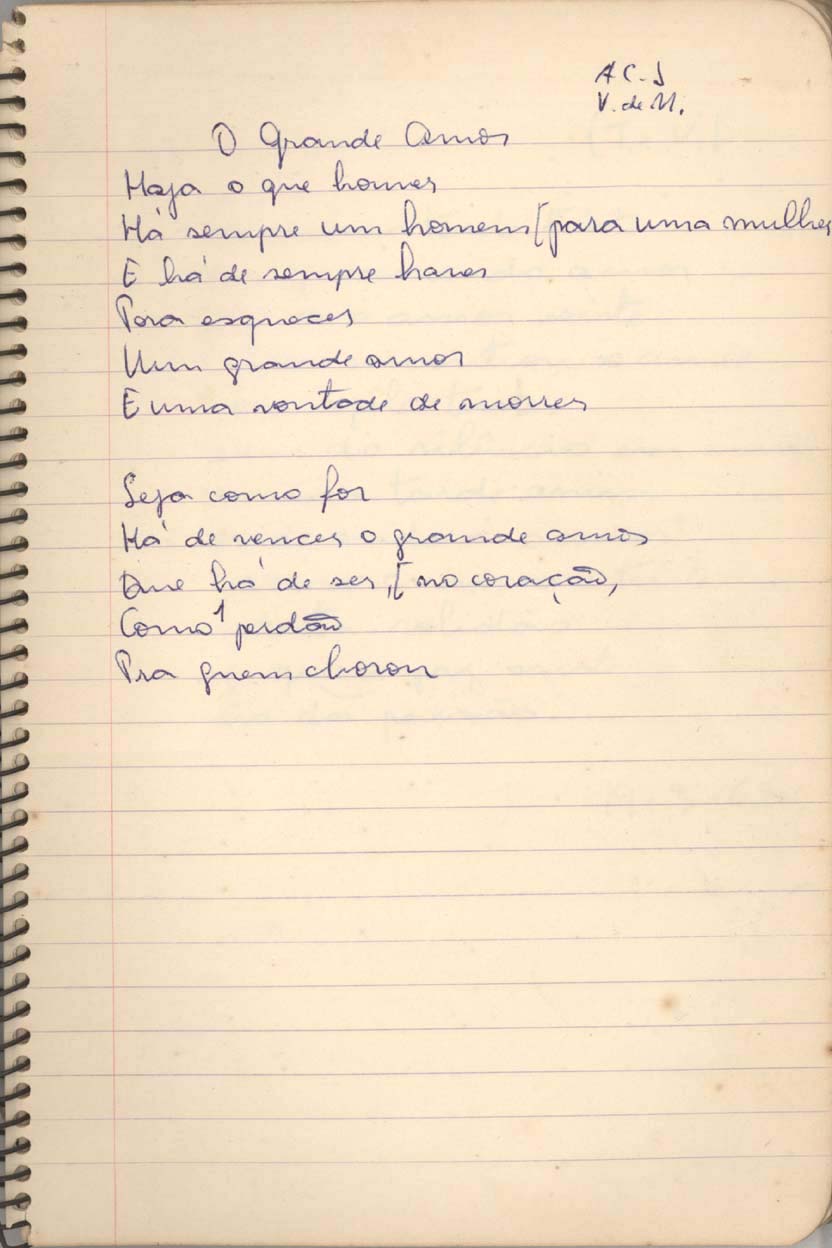 A C. J
V. de M.
O Grande Amor
Haja o que houver
Há sempre um homem [para uma mulher
E há de sempre haver
Para esquecer
Um grande amor
E uma vontade de morrer
Seja como for
Há de vencer o grande amor
Que há de ser, [no coração,
Como 1 perdão
Pra quem chorou